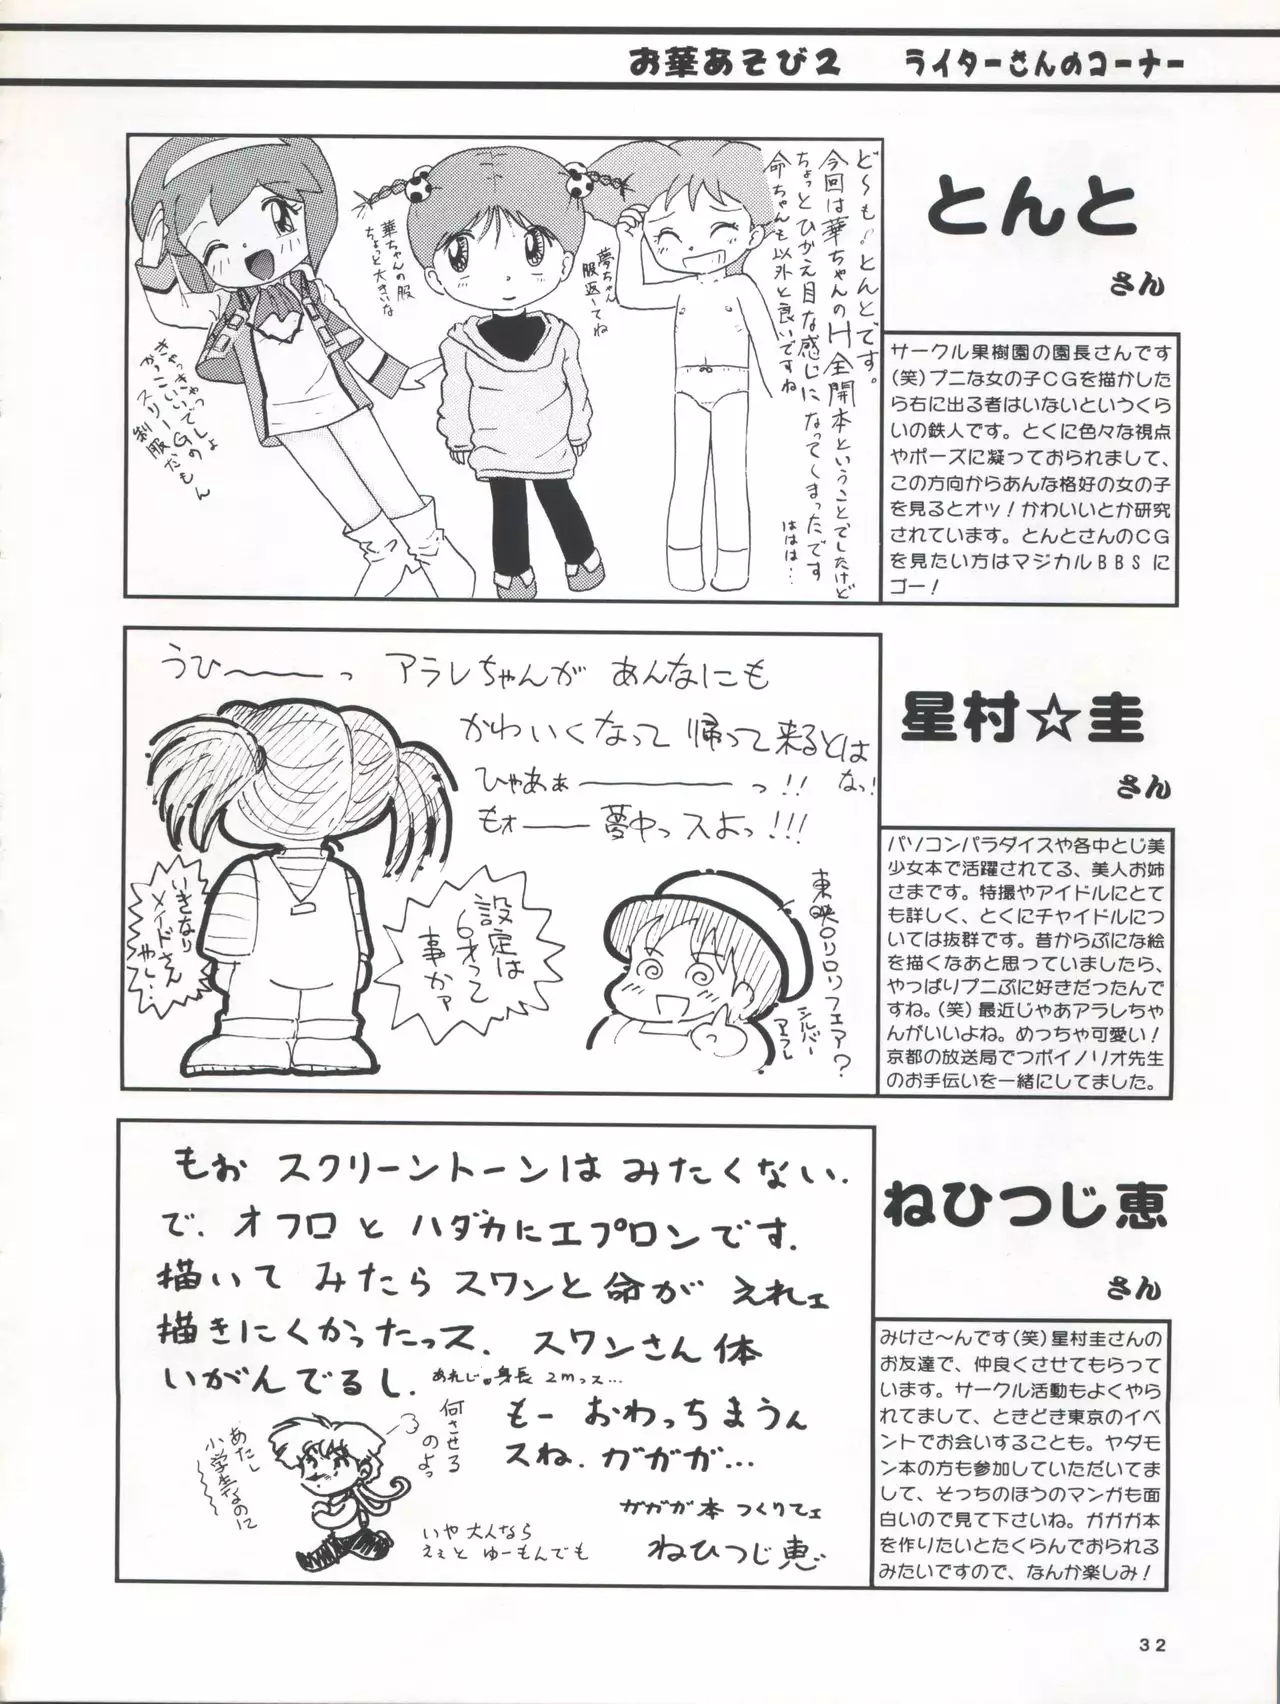 お華あそび2　ライターさんのコーナー
とんと
さん
サークル果樹園の園長さんです
(笑)プニな女の子CGを描かした
ら右に出る者はいないというくら
いの鉄人です。とくに色々な視点
やポーズに凝っておられまして、
この方向からあんな格好の女の子
を見るとオッ！かわいいとか研究
されています。とんとさんのCG
を見たい方はマジカルBBSに
ゴー！
ど〜も♪とんとです。
今回は華ちゃんのH全開本ということでしたけど
ちょっとひかえ目な感じになってしまったです
命ちゃんも以外と良いですね
ははは…
夢ちゃん
服返してね
華ちゃんの服
ちょっと大きいな
きゃっきゃっ
かっこいいでしょ
スリーGの
制服だもん
星村☆圭
さん
パソコンパラダイスや各中とじ美
少女本で活躍されてる、美人お姉
さまです。特撮やアイドルにとて
も詳しく、とくにチャイドルにつ
いては抜群です。昔からぷにな絵
を描くなあと思っていましたら、
やっぱりプニぷに好きだったんで
すね。(笑)最近じゃあアラレちゃ
んがいいよね。めっちゃ可愛い！
京都の放送局でつボイノリオ先生
のお手伝いを一緒にしてました。
うひ――っ アラレちゃんが あんなにも
かわいくなって 帰って来るとは
ひゃあぁ―――っ!! なっ!
もォ――夢中っスよっ!!!
東映ロリロリフェア?
シルバー
アラレ
設定は
6才って
事かァ
いきなり
メイドさん
やし…
ねひつじ恵
さん
みけさ〜んです(笑)星村圭さんの
お友達で、仲良くさせてもらって
います。サークル活動もよくやら
れてまして、ときどき東京のイベ
ントでお会いすることも。ヤダモ
ン本の方も参加していただいてま
して、そっちのほうのマンガも面
白いので見て下さいね。ガガガ本
を作りたいとたくらんでおられる
みたいですので、なんか楽しみ！
もお スクリーントーンは みたくない.
で、オフロ と ハダカにエプロンです.
描いて みたら スワンと 命が えれェ
描きにくかったっス. スワンさん 体
いがんでるし. あれじゃ身長 2mっス…
もー おわっちまうん
スね. ガガガ…
ガガガ本 つくりてェ
ねひつじ恵
何させる
のよっ
あたし
小学生なのに〜
いや 大人なら
ええと ゆーもんでも
32